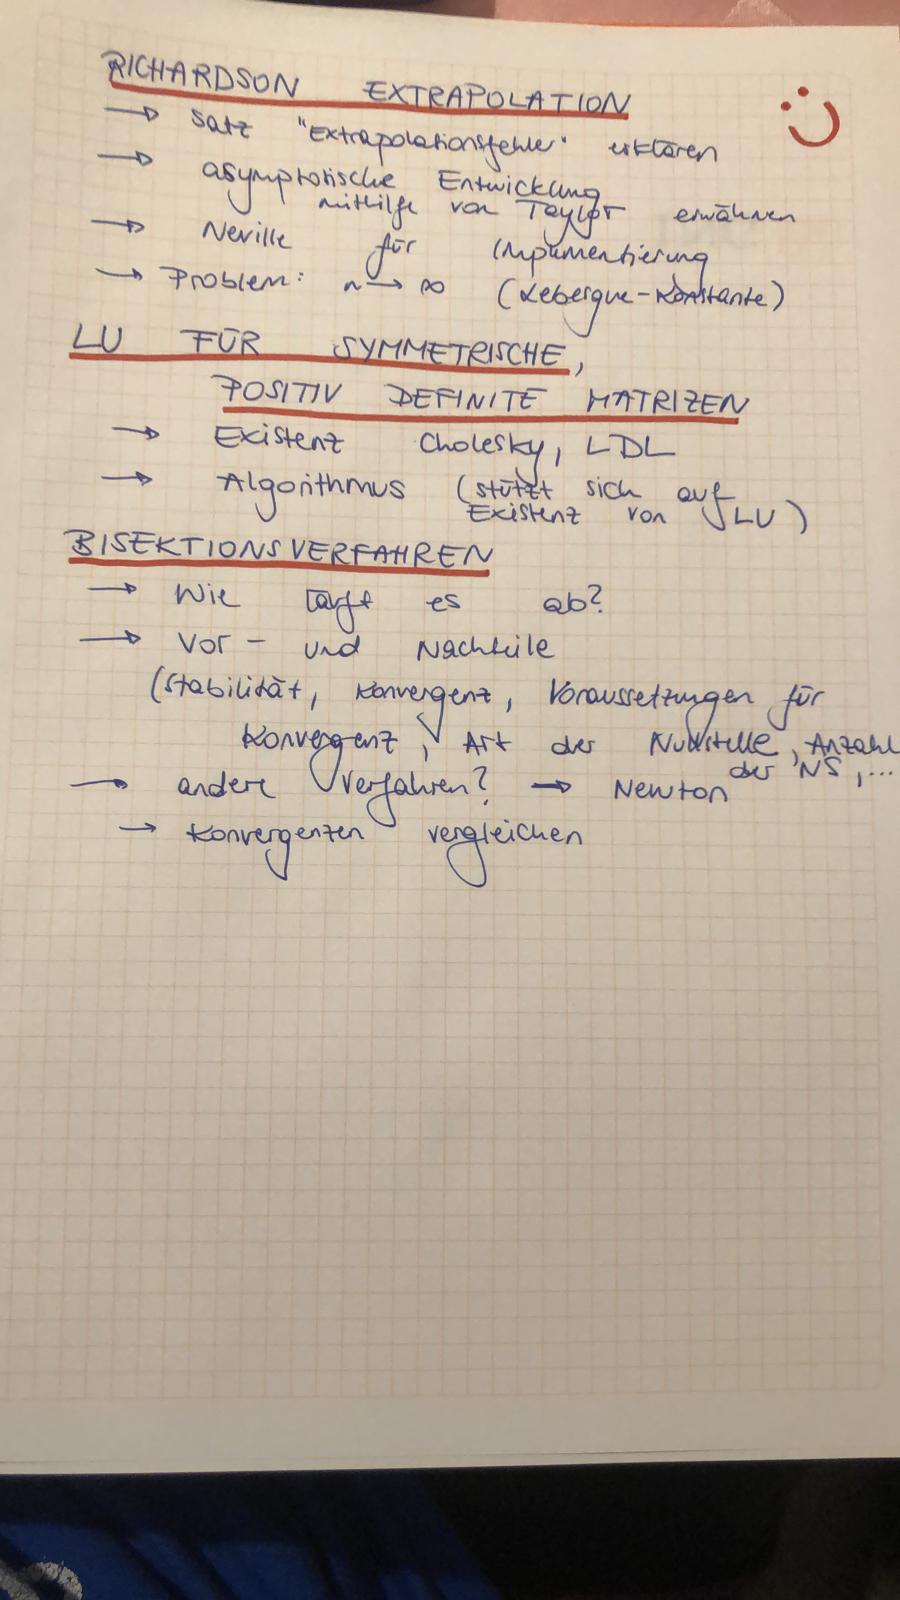 RICHARDSON EXTRAPOLATION
→ Satz "Extrapolationsfehler" erklären
→ asymptotische Entwicklung
mithilfe von Taylor erwähnen
→ Neville für Implementierung
→ Problem: n → ∞ (Lebesgue-Konstante)
LU FÜR SYMMETRISCHE,
POSITIV DEFINITE MATRIZEN
→ Existenz Cholesky, LDL
→ Algorithmus (stützt sich auf
Existenz von LU)
BISEKTIONSVERFAHREN
→ Wie läuft es ab?
→ Vor- und Nachteile
(Stabilität, Konvergenz, Voraussetzungen für
Konvergenz, Art der Nullstelle, Anzahl
der NS, ...
→ andere Verfahren? → Newton
→ Konvergenzen vergleichen